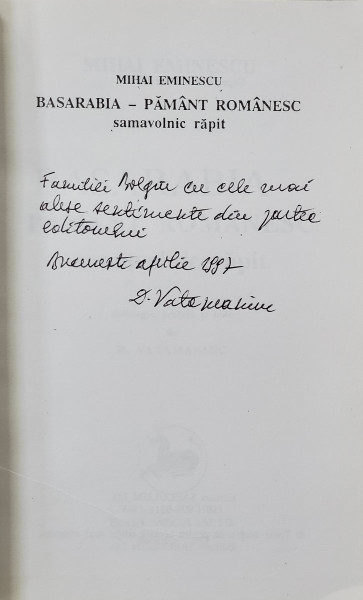 MIHAI EMINESCU
BASARABIA – PĂMÂNT ROMÂNESC
samavolnic răpit
Familiei cu cele mai
alese sentimente din partea
editorului
București aprilie 1997
D. Vatamaniuc